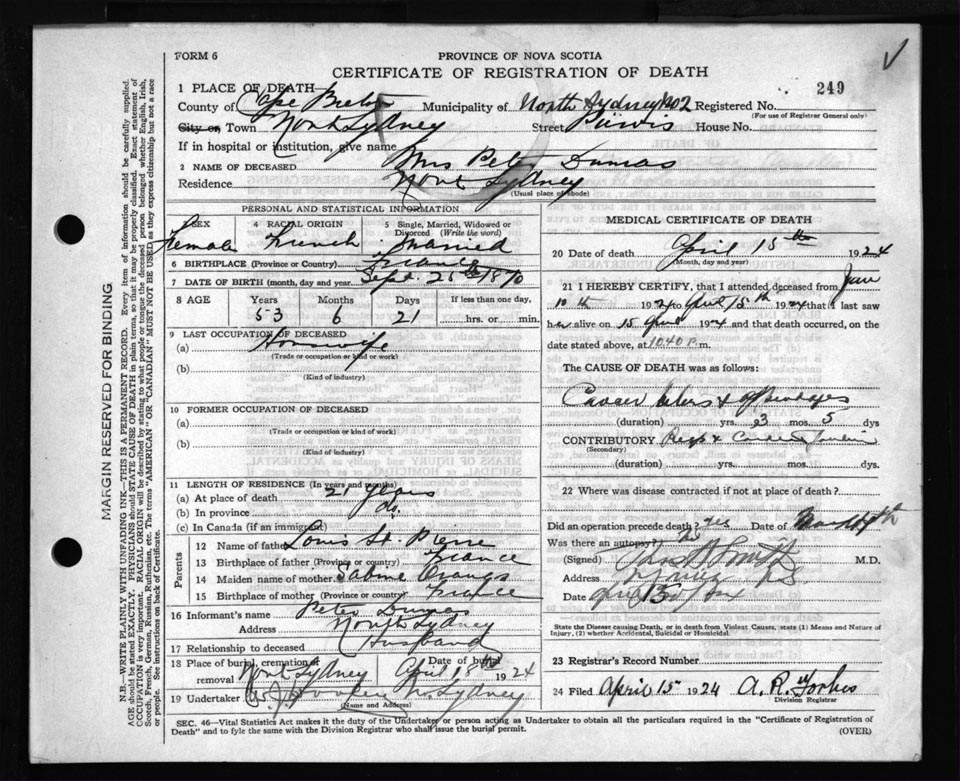 FORM 6
PROVINCE OF NOVA SCOTIA
CERTIFICATE OF REGISTRATION OF DEATH
249
1 PLACE OF DEATH
County of Cape Breton Municipality of North Sydney No 2 Registered No.
(For use of Registrar General only)
City or Town North Sydney Street Purvis House No.
If in hospital or institution, give name
2 NAME OF DECEASED Mrs Peter Dumas
Residence North Sydney
(Usual place of abode)
PERSONAL AND STATISTICAL INFORMATION
3 SEX 4 RACIAL ORIGIN 5 Single, Married, Widowed or Divorced (Write the word)
Female French Married
6 BIRTHPLACE (Province or Country) France
7 DATE OF BIRTH (month, day and year) Sept. 25th 1870
8 AGE Years Months Days If less than one day,
53 6 21 hrs. or min.
9 LAST OCCUPATION OF DECEASED
(a) Housewife
(Trade or occupation or kind of work)
(b)
(Kind of industry)
10 FORMER OCCUPATION OF DECEASED
(a)
(Trade or occupation or kind of work)
(b)
(Kind of industry)
11 LENGTH OF RESIDENCE (In years and months)
(a) At place of death 21 years
(b) In province do.
(c) In Canada (if an immigrant)
Parents
12 Name of father Louis St. Pierre
13 Birthplace of father (Province or country) France
14 Maiden name of mother Sabine
15 Birthplace of mother (Province or country) France
16 Informant's name Peter Dumas
Address North Sydney
17 Relationship to deceased Husband
18 Place of burial, cremation or removal Date of burial
North Sydney April 18th 1924
19 Undertaker No Sydney
(Name and Address)
MEDICAL CERTIFICATE OF DEATH
20 Date of death April 15th 1924
(Month, day and year)
21 I HEREBY CERTIFY, that I attended deceased from Jan
10th 1924 to April 15th 1924 that I last saw
her alive on 15 April 1924 and that death occurred, on the
date stated above, at 10.40 P.m.
The CAUSE OF DEATH was as follows:
Cancer Uterus & appendages
(duration) yrs. 3 mos. 5 dys
CONTRIBUTORY
(Secondary)
(duration) yrs. mos. dys.
22 Where was disease contracted if not at place of death?
Did an operation precede death? yes Date of
Was there an autopsy? No
(Signed) M.D.
Address
Date
State the Disease causing Death, or in death from Violent Causes, state (1) Means and Nature of Injury, (2) whether Accidental, Suicidal or Homicidal.
23 Registrar's Record Number
24 Filed April 15 1924 A. R. Forbes
Division Registrar
SEC. 46—Vital Statistics Act makes it the duty of the Undertaker or person acting as Undertaker to obtain all the particulars required in the "Certificate of Registration of
Death" and to fyle the same with the Division Registrar who shall issue the burial permit.
(OVER)
MARGIN RESERVED FOR BINDING
N.B.—WRITE PLAINLY WITH UNFADING INK—THIS IS A PERMANENT RECORD. Every item of information should be carefully supplied.
AGE should be stated EXACTLY. PHYSICIANS should STATE CAUSE OF DEATH in plain terms, so that it may be properly classified. Exact statement of
OCCUPATION is very important. RACIAL ORIGIN will be described by stating to what people or tongue the deceased person belonged whether English, Irish,
Scotch, French, German, Russian, Ruthenian, etc. The terms "AMERICAN" OR "CANADIAN" MUST NOT BE USED as they express citizenship but not a race
or people. See instructions on back of Certificate.